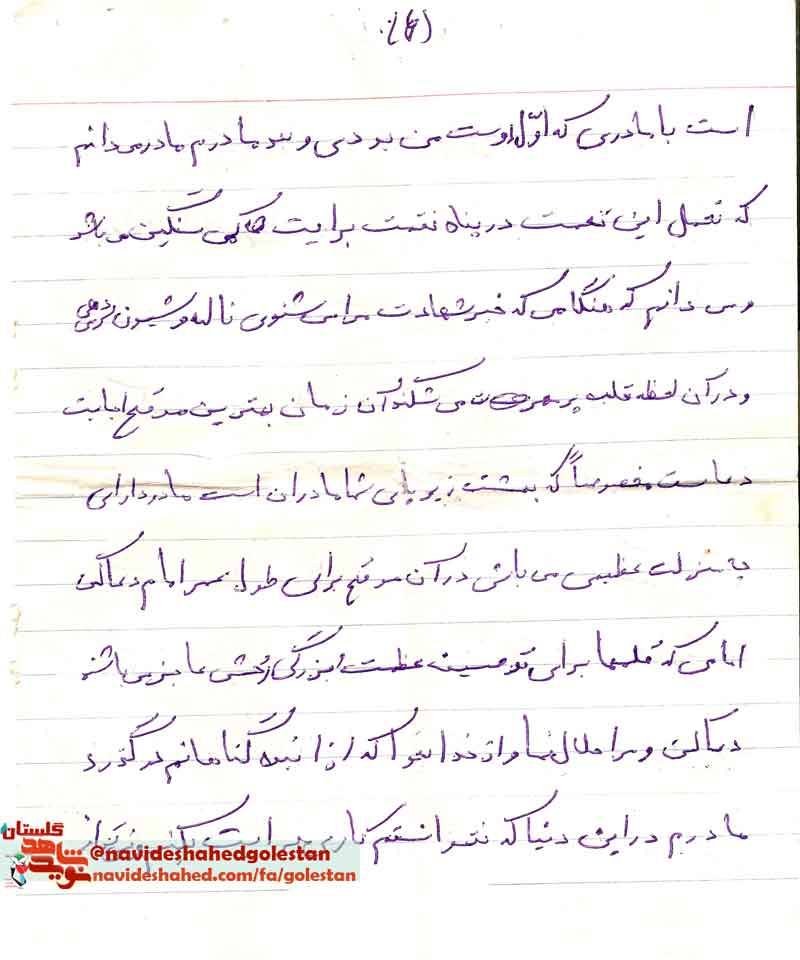 (۶)
است با مادری که اوّل دوست من بودی و بعد مادرم مادر می دانم
که تحمل این نعمت در پناه نقمت برایت کمی سنگین می باشد
و می دانم که هنگامی که خبر شهادت مرا می شنوی ناله و شیون می دهی
و در آن لحظه قلب پر می شکند و آن زمان بهترین موقع اجابت
دعاست مخصوصاً که بهشت زیر پای شما مادران است مادر دارای
منزلت عظیمی می باشی در آن موقع برای طول عمر امام دعا کنی
امامی که قلمها برای توصیف عظمت و بزرگی روحش عاجز می باشند
دعا کن و مرا حلال نما و از خدا بخواه که از این بنده گناهانم در گذرد
مادرم در این دنیا که نتوانستم کاری برایت بکنم
گلستان
نوید شاهد
@navideshahedgolestan
navideshahed.com/fa/golestan